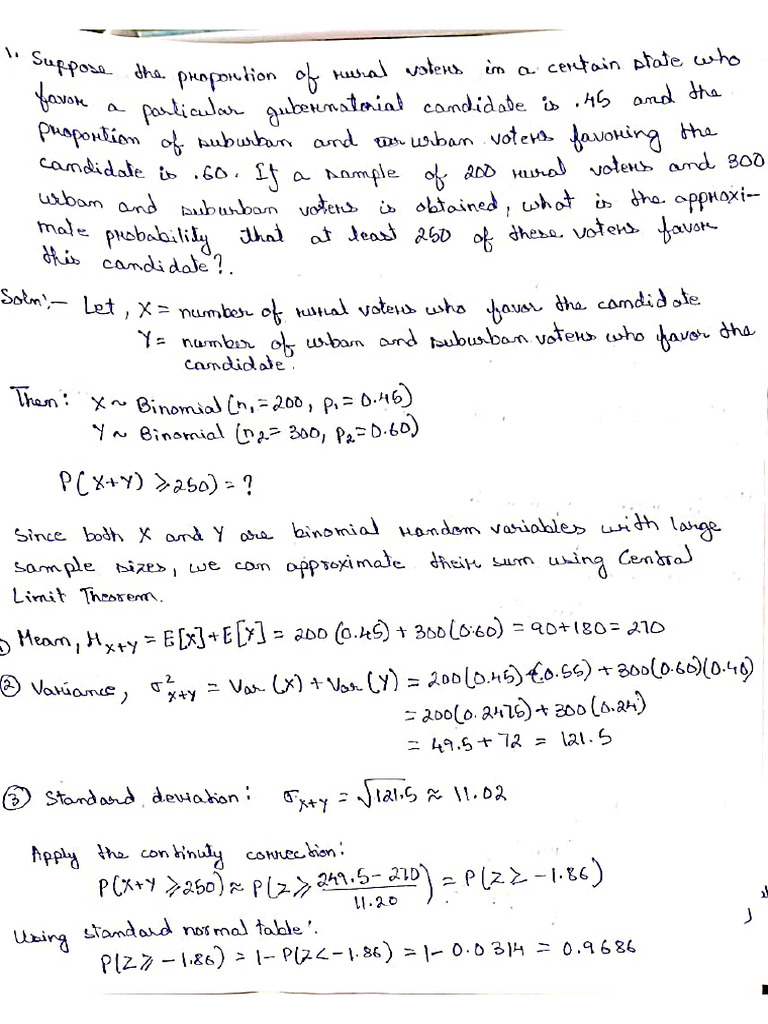 1. Suppose the proportion of rural voters in a certain state who
favor a particular gubernatorial candidate is .45 and the
proportion of suburban and urban voters favoring the
candidate is .60. If a sample of 200 rural voters and 300
urban and suburban voters is obtained, what is the approxi-
mate probability that at least 250 of these voters favor
this candidate?.
Soln:- Let, X = number of rural voters who favor the candidate
Y = number of urban and suburban voters who favor the
candidate.
Then: X ~ Binomial (n₁=200, p₁=0.45)
Y ~ Binomial (n₂=300, p₂=0.60)
P(X+Y) ≥250) = ?
Since both X and Y are binomial random variables with large
sample sizes, we can approximate their sum using Central
Limit Theorem.
① Mean, μ_{X+Y} = E[X]+E[Y] = 200 (0.45) + 300(0.60) = 90+180 = 270
② Variance, σ²_{X+Y} = Var (X) + Var (Y) = 200(0.45)(0.55) + 300(0.60)(0.40)
= 200(0.2475) + 300 (0.24)
= 49.5 + 72 = 121.5
③ Standard deviation: σ_{X+Y} = √121.5 ≈ 11.02
Apply the continuty correction:
P(X+Y ≥250) ≈ P(Z ≥ (249.5-270)/11.20) = P(Z ≥ -1.86)
Using standard normal table:
P(Z ≥ -1.86) = 1- P(Z< -1.86) = 1- 0.0314 = 0.9686